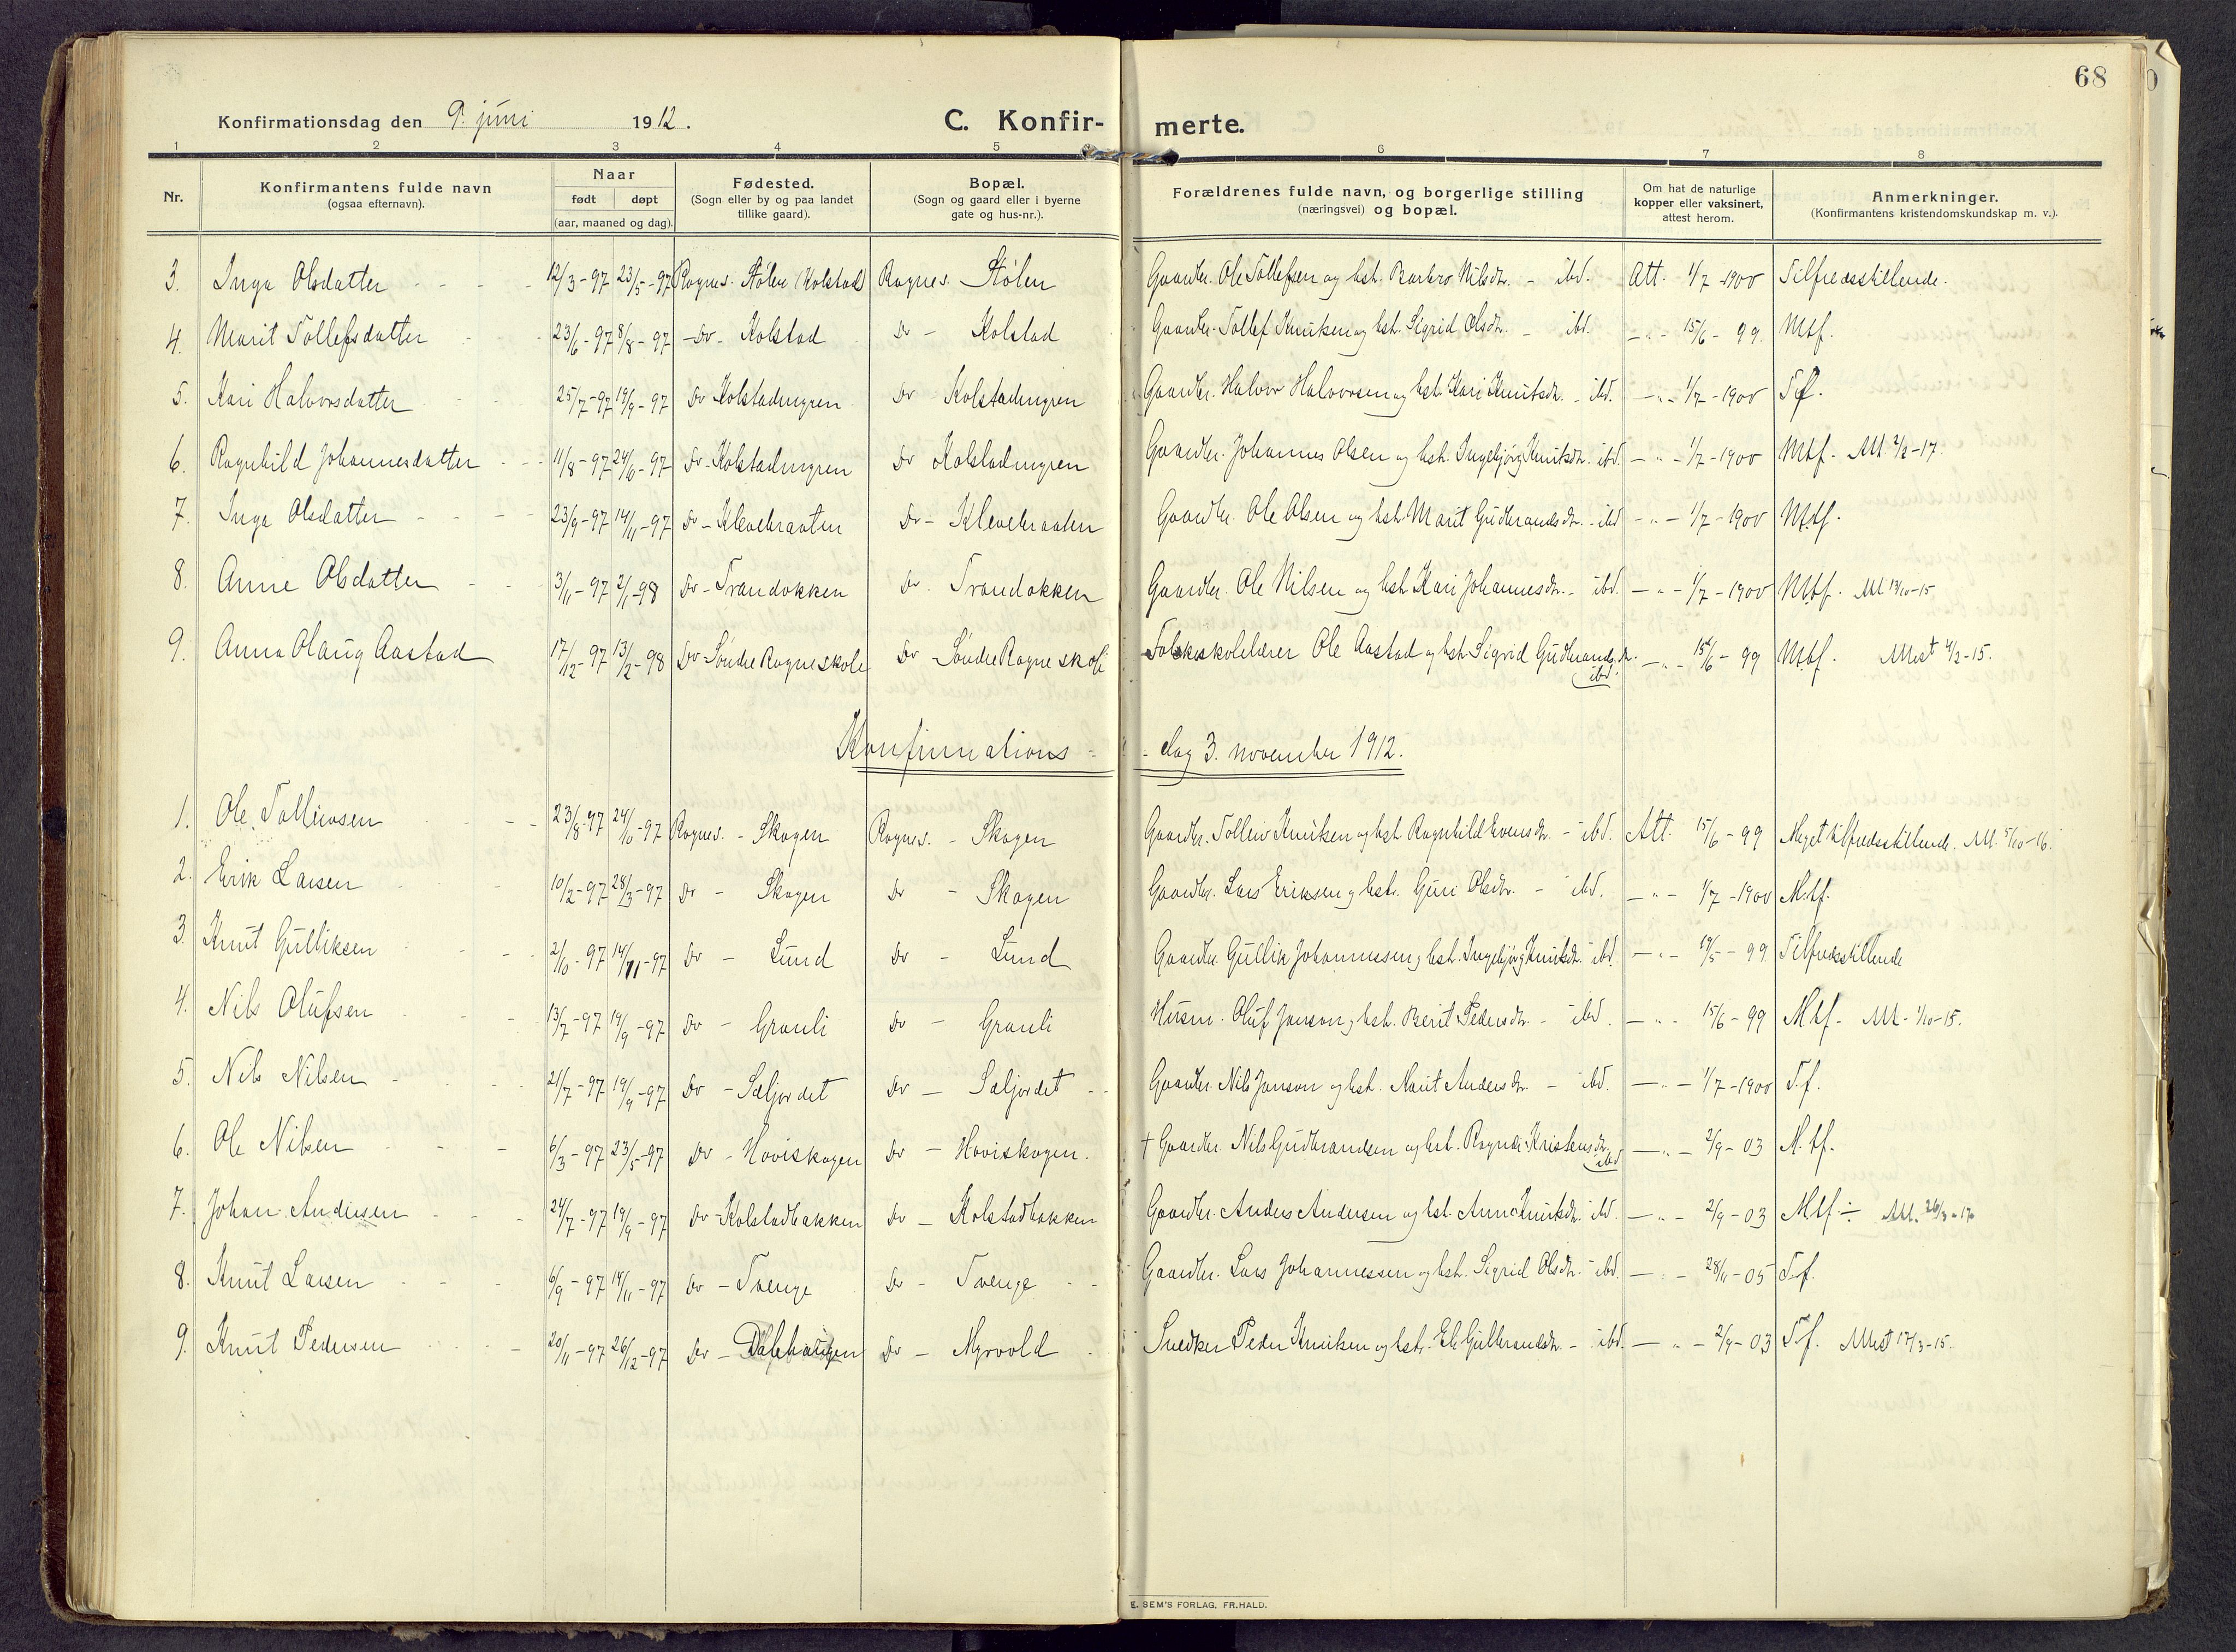 68
Konfirmationsdag den 9. juni 1912. C. Konfir- merte.
1 2 3 4 5 6 7 8
Nr. Konfirmantens fulde navn (ogsaa efternavn). Naar født døpt (aar, maaned og dag). Fødested. (Sogn eller by og paa landet tillike gaard). Bopæl. (Sogn og gaard eller i byerne gate og hus-nr.). Forældrenes fulde navn, og borgerlige stilling (næringsvei) og bopæl. Om hat de naturlige kopper eller vaksinert, attest herom. Anmerkninger. (Konfirmantens kristendomskundskap m. v.).
3. Inga Olsdatter 12/3-97 23/5-97 Rognes. Stølen (Kolstad) Rognes. Stølen Gaardbr. Ole Tollefsen og hst. Barbro Nilsdr. - ibd. Att. 1/7-1900 Tilfredsstillende.
4. Marit Tollefsdatter 23/6-97 8/8-97 -Do- Kolstad Do - Kolstad Gaardbr. Tollef Knutsen og hst. Sigrid Olsdr. - ibd. -"- 15/6-99. Mtf.
5. Kari Halvorsdatter 25/7-97 19/9-97 Do Kolstadmyren Do Kolstadmyren Gaardbr. Halvor Halvorsen og hst. Kari Knutsdr. - ibd. -"- 1/7-1900 Tf.
6. Ragnhild Johannesdatter 11/8-97 24/10-97 Do-Kolstadmyren Do Kolstadmyren Gaardbr. Johannes Olsen og hst. Ingebjørg Knutsdr. ibd. -"- 1/7-1900 Mtf. Att. 2/2-17.
7. Inga Olsdatter 23/9-97 14/11-97 Do - Klevebraaten Do - Klevebraaten Gaardbr. Ole Olsen og hst. Marit Gudbrandsdr. - ibd -"- 1/7-1900 Mtf.
8. Anne Olsdatter 3/11-97 2/1-98 Do - Trandokken Do. Trandokken Gaardbr. Ole Nilsen og hst. Kari Johannesdr. - ibd. -"- 1/7-1900 Mtf. Att. 13/10-15
9. Anna Olaug Aastad 17/12-97 13/2-98 Do-Søndre Rogne skole Do-Søndre Rogne skole Folkeskolelærer Ole Aastad og hst. Sigrid Gudbrandsdr. ibd. -"- 15/6-99 Mtf. Attest 4/2-15.
Konfirmations- -dag 3. november 1912.
1. Ole Tolleivsen 23/8-97 24/10-97 Rognes. - Skogen Rognes. - Skogen Gaardbr. Tolleiv Knutsen og hst. Ragnhild Evensdr. - ibd. Att. 15/6-99 Meget tilfredsstillende. Att. 5/10-16.
2. Erik Larsen 10/2-97 28/3-97 Do - Skogen Do - Skogen Gaardbr. Lars Eriksen og hst. Guri Olsdr. - ibd. -"- 1/7-1900 M.tf.
3. Knut Gulliksen 2/10-97 14/11-97 Do - Lund Do - Lund Gaardbr. Gullik Johannessen og hst. Ingebjørg Knutsdr. ibd. -"- 19/5-99. Tilfredsstillende
4. Nils Olufsen 13/7-97 19/9-97 Do - Granli Do - Granli Husm. Oluf Janson og hst. Berit Pedersdr. - ibd. -"- 15/6-99 Mtf. Att. 1/10-15.
5. Nils Nilsen 21/7-97 19/9-97 Do - Sæljordet Do - Sæljordet Gaardbr. Nils Janson og hst. Marit Andersdr. - ibd. -"- 1/7-1900 T.f.
6. Ole Nilsen 6/3-97 23/5-97 Do - Hoviskogen Do - Hoviskogen. † Gaardbr. Nils Gudbrandsen og hst. Ragndi Kristensdr. ibd -"- 2/9-03 M.tf.
7. Johan Andersen 24/7-97 19/9-97 Do-Kolstadbakken Do - Kolstadbakken Gaardbr. Anders Andersen og hst. Anne Knutsdr. ibd. -"- 2/9-03 Mtf ÷ Att. 26/3-17
8. Knut Larsen 6/9-97 14/11-97 Do - Tvenge Do - Tvenge Gaardbr. Lars Johannessen og hst. Sigrid Olsdr. - ibd. -"- 28/11-05 T.f.
9. Knut Pedersen 20/11-97 26/12-97 Do - Dalehaugen Do - Myrvold Snedker Peder Knutsen og hst. Eli Gulbrandsdr. - ibd. -"- 2/9-03 T.f. Attest 17/3-15.
E. SEM'S FORLAG, FR.HALD.